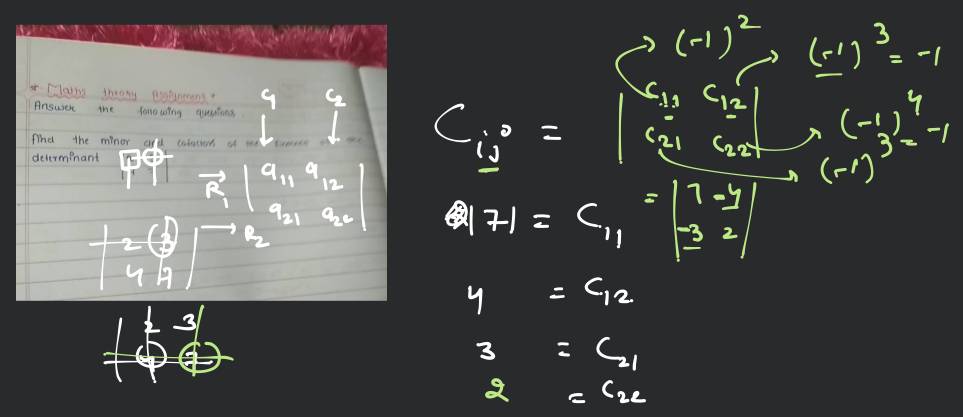 * Maths theory Assignment *
Answer the following questions
find the minor and cofactors of
determinant
C₁ C₂
R₁ → | a₁₁ a₁₂ |
| a₂₁ a₂₂ | → R₂
| 2 3 |
| 4 7 |
| 2 3
| 4 7
Cᵢⱼ =
| C₁₁ C₁₂ |
| C₂₁ C₂₂ |
(-1)²
(-1)³ = -1
(-1)⁴
(-1)³ = -1
= | 7 -4 |
| -3 2 |
|7| = C₁₁
4 = C₁₂
3 = C₂₁
2 = C₂₂